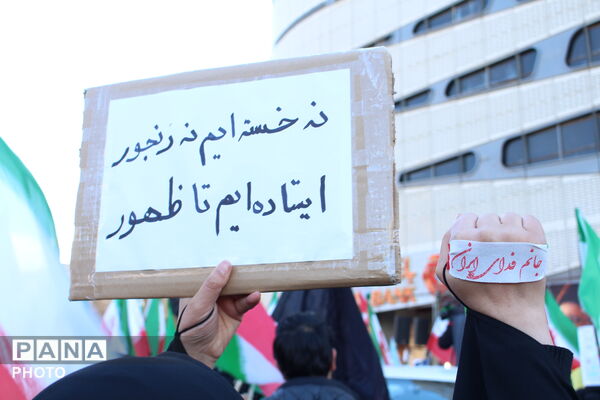 نه خسته ایم نه رنجور
ایستاده ایم تا ظهور
جانم فدای ایران
PANA
PHOTO